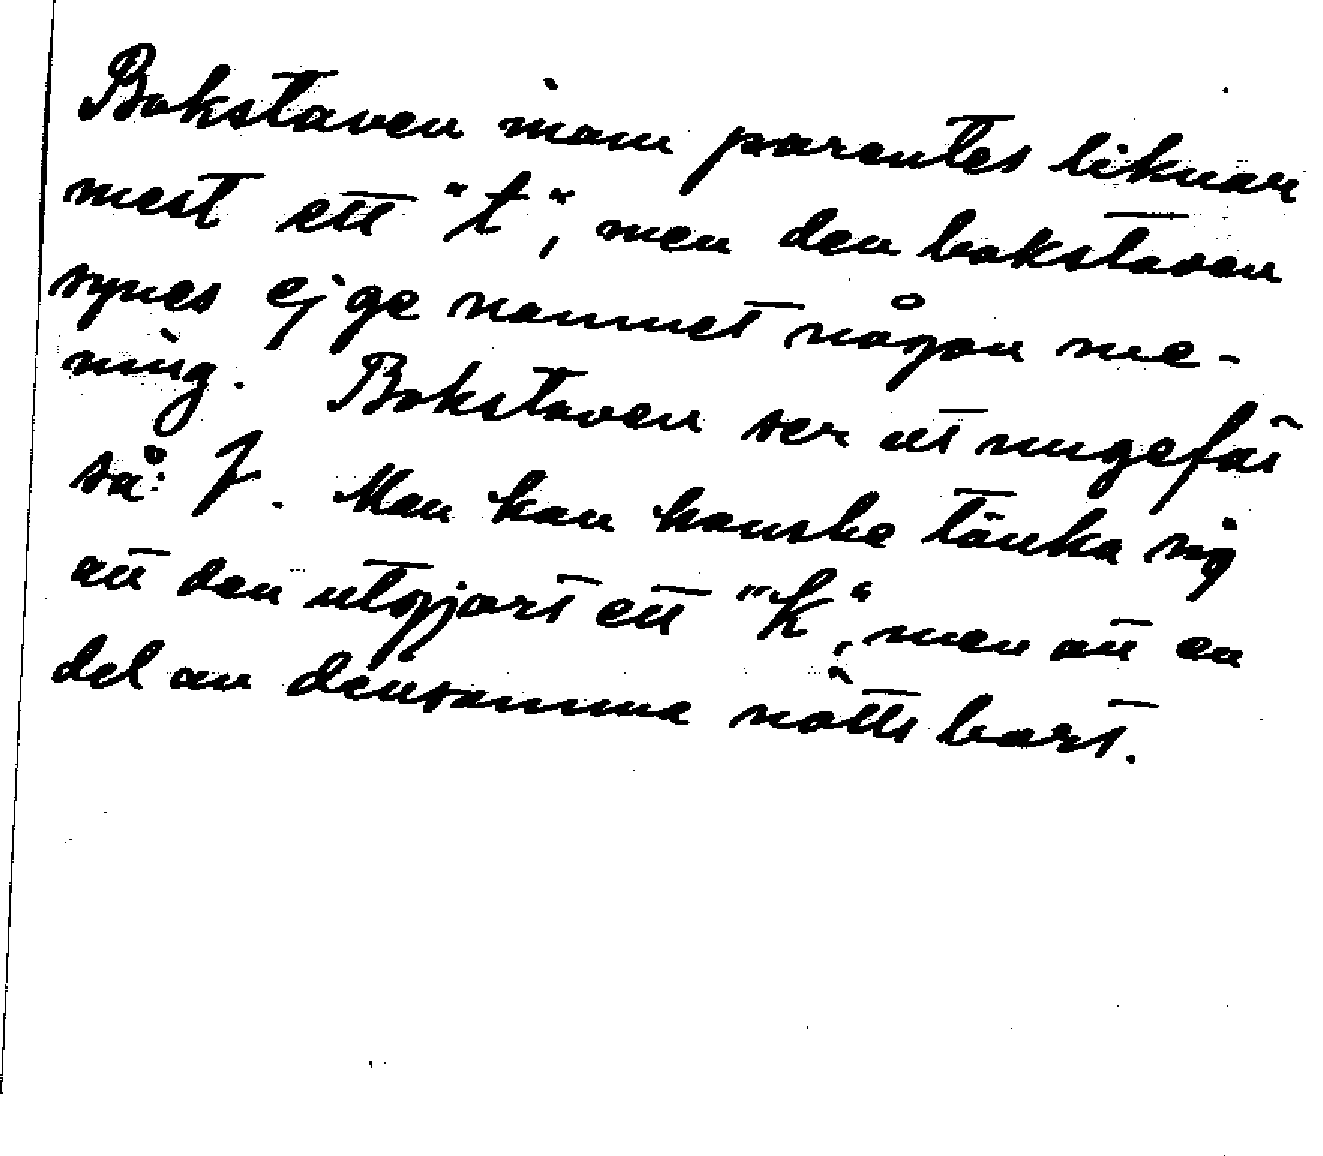 Bokstaven inom parentes liknar
mest ett "t", men den bokstaven
synes ej ge namnet någon me-
ning. Bokstaven ser ut ungefär
så: . Man kan kanske tänka sig
att den utgjort ett "k", men att en
del av densamma nötts bort.